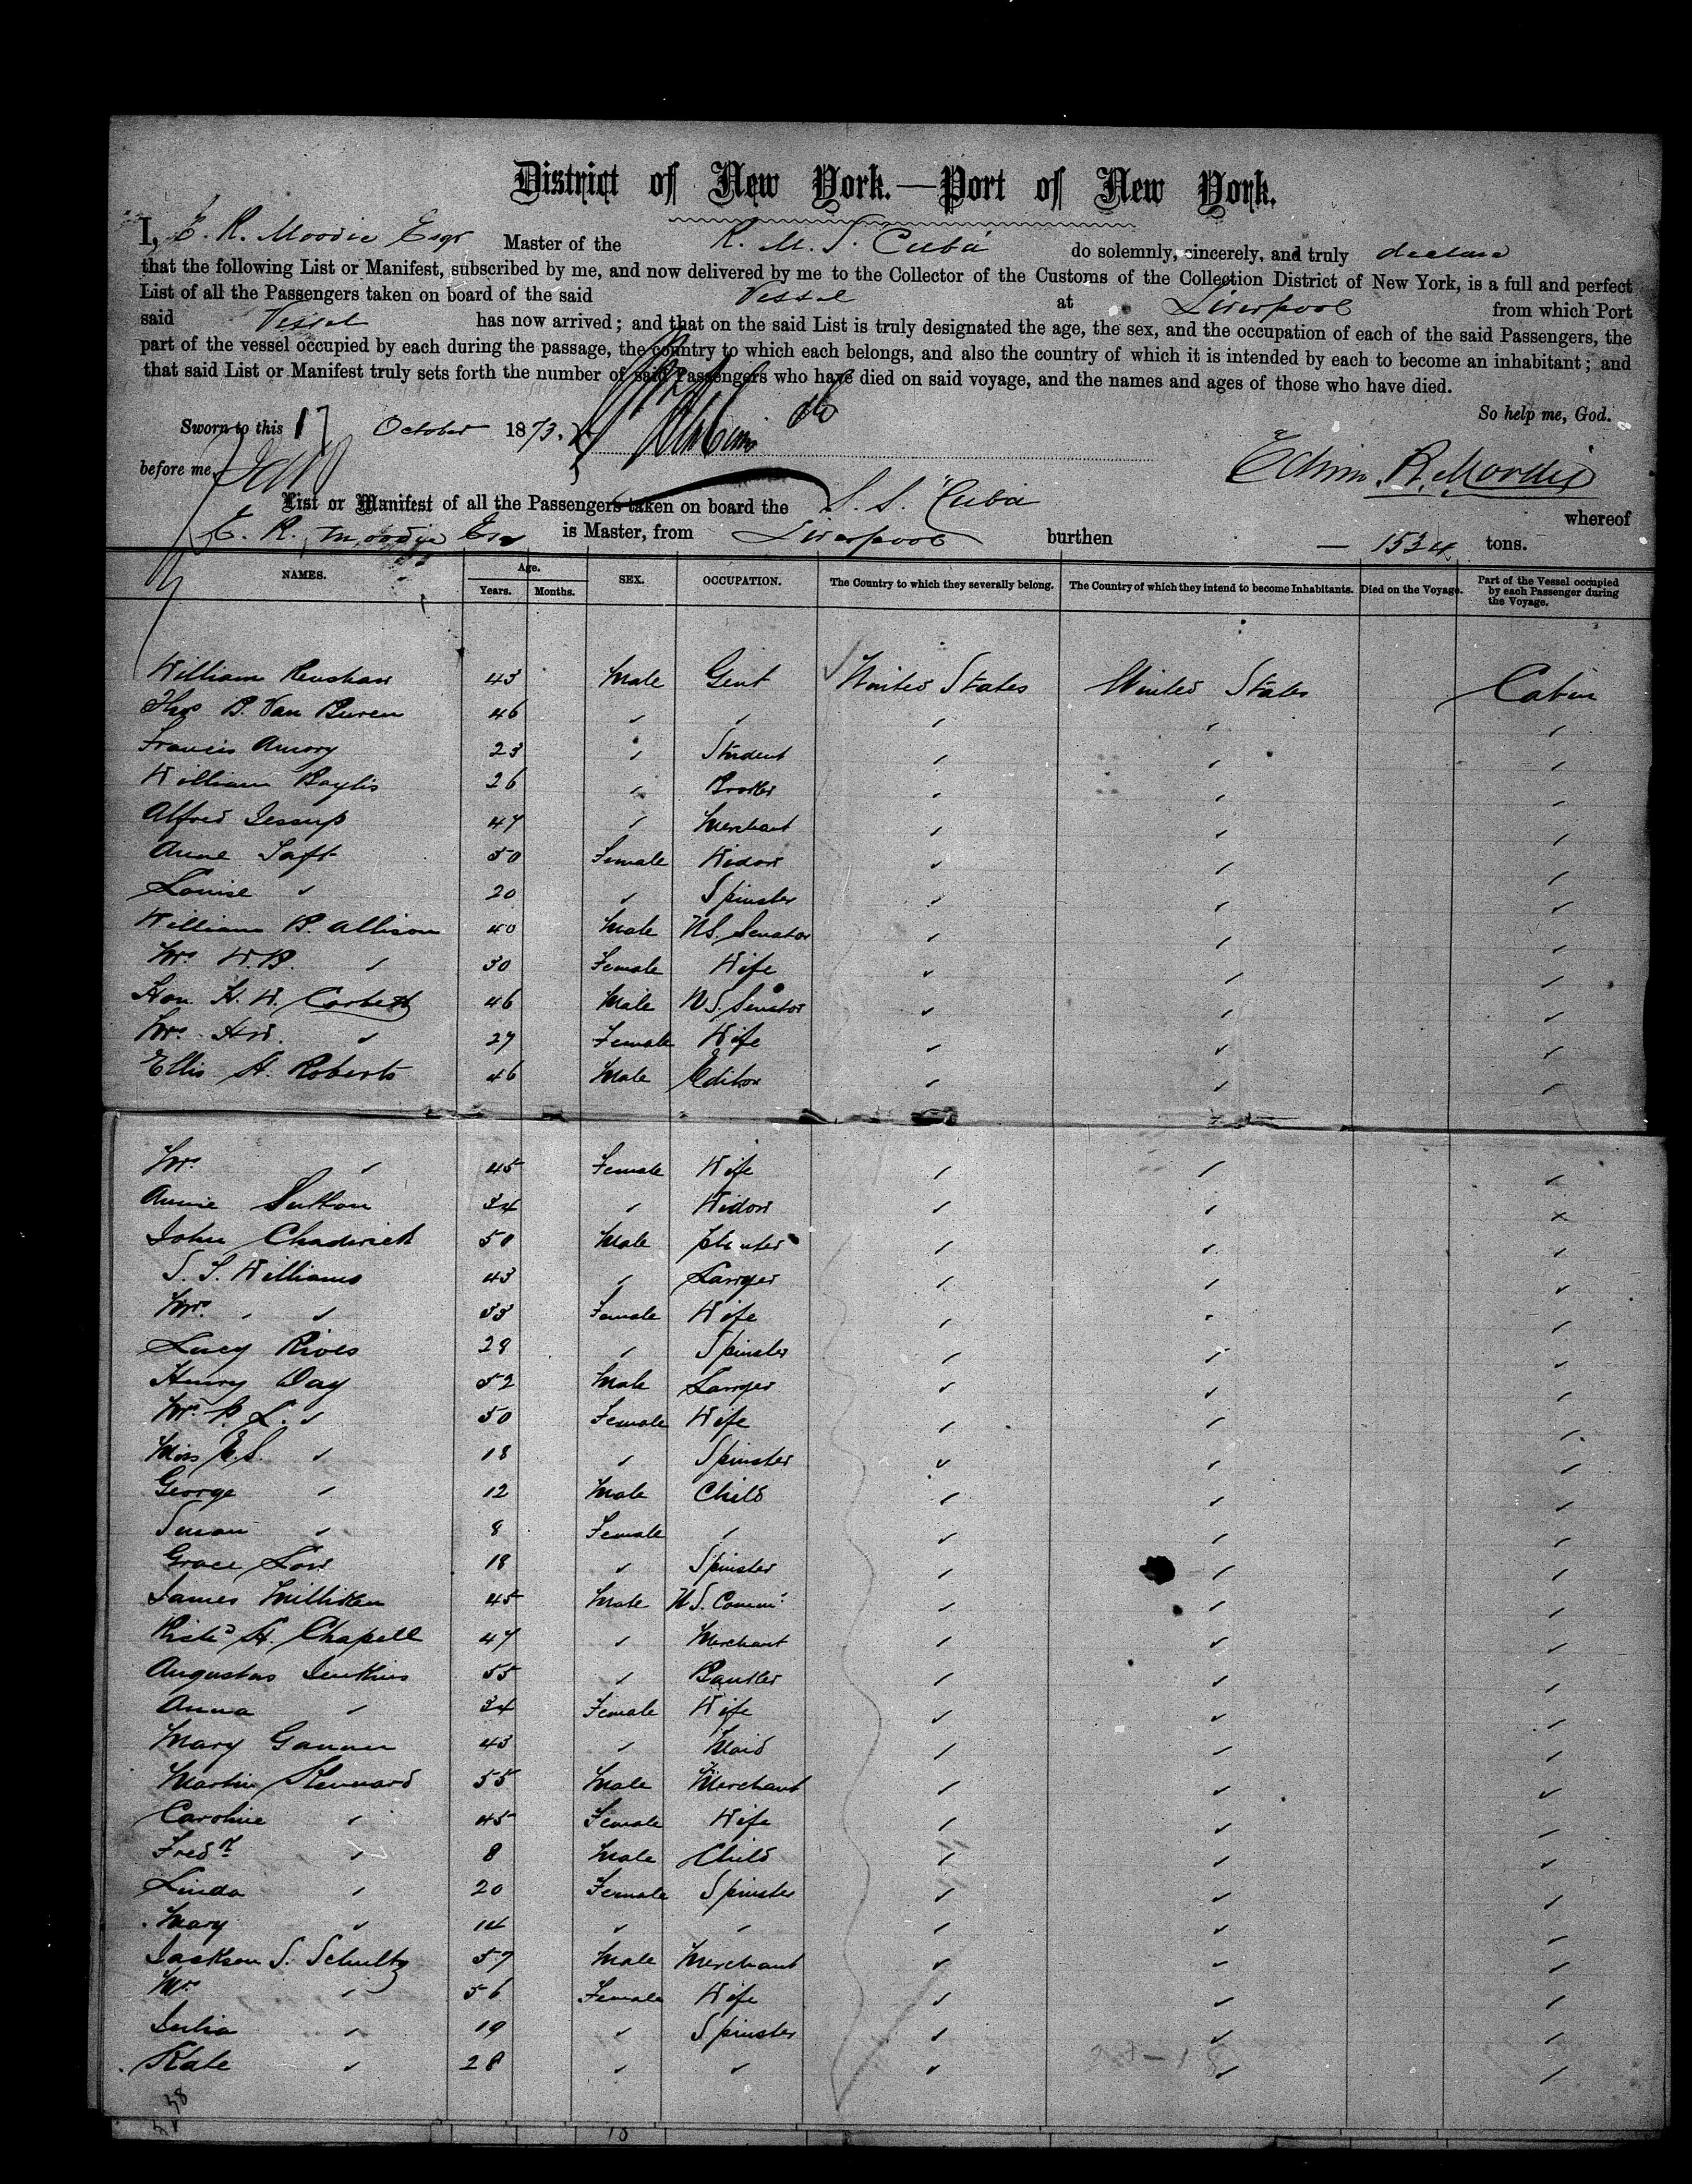 District of New York.—Port of New York.
I, E. R. Moodie Esqr Master of the R. M. S. Cuba do solemnly, sincerely, and truly declare
that the following List or Manifest, subscribed by me, and now delivered by me to the Collector of the Customs of the Collection District of New York, is a full and perfect
List of all the Passengers taken on board of the said Vessel at Liverpool from which Port
said Vessel has now arrived; and that on the said List is truly designated the age, the sex, and the occupation of each of the said Passengers, the
part of the vessel occupied by each during the passage, the country to which each belongs, and also the country of which it is intended by each to become an inhabitant; and
that said List or Manifest truly sets forth the number of said Passengers who have died on said voyage, and the names and ages of those who have died.
So help me, God.
Sworn to this 17 October 1873.
before me, Edwin R. Moodie
List or Manifest of all the Passengers taken on board the S. S. "Cuba whereof
E. R. Moodie Esr is Master, from Liverpool burthen — 1534 tons.
NAMES. Age. Years. Months. SEX. OCCUPATION. The Country to which they severally belong. The Country of which they intend to become Inhabitants. Died on the Voyage. Part of the Vessel occupied by each Passenger during the Voyage.
William Renshaw 43 Male Gent United States United States Cabin
Thos B. Van Buren 46 " " " " "
Francis Amory 23 " Student " " "
William Baylis 26 " Broker " " "
Alfred Jessup 47 " Merchant " " "
Anne Taft 50 Female Widow " " "
Louise " 20 " Spinster " " "
William B. Allison 40 Male US. Senator " " "
Mrs W.B. " 30 Female Wife " " "
Hon. H. W. Corbett 46 Male U.S. Senator " " "
Mrs. H.W. " 27 Female Wife " " "
Ellis H. Roberts 46 Male Editor " " "
Mrs. " 45 Female Wife " " "
Annie Sutton 34 " Widow " " "
John Chadwick 50 Male " " "
S. S. Williams 43 " Lawyer " " "
Mrs. " " 33 Female Wife " " "
Lucy Rives 28 " Spinster " " "
Henry Day 52 Male Lawyer " " "
Mrs. P. L. " 50 Female Wife " " "
Miss K.S. " 18 " Spinster " " "
George " 12 Male Child " " "
Susan " 8 Female " " " "
Grace Low 18 " Spinster " " "
James Milliken 45 Male U.S. Commr " " "
Richd H. Chapell 47 " Merchant " " "
Augustus Jenkins 55 " Banker " " "
Anna " 34 Female Wife " " "
Mary Gannen 43 " Maid " " "
Martin Kennard 55 Male Merchant " " "
Caroline " 45 Female Wife " " "
Fredk " 8 Male Child " " "
Linda " 20 Female Spinster " " "
Mary " 14 " " " " "
Jackson S. Schultz 57 Male Merchant " " "
Mrs " 56 Female Wife " " "
Julia " 19 " Spinster " " "
Kate " 28 " " " " "
38